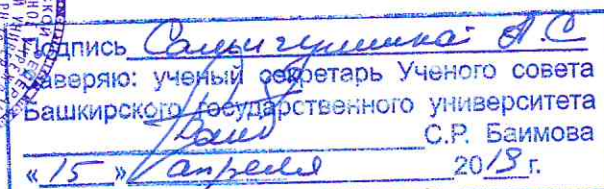 Подпись А.С
Заверяю: ученый секретарь Ученого совета
Башкирского государственного университета
С.Р. Баимова
«15» апреля 2013 г.